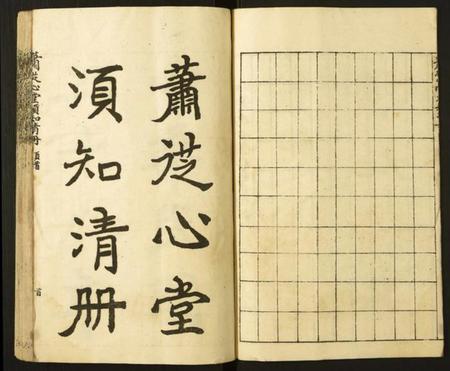 蕭從心堂
須知清册
蕭從心堂須知清册